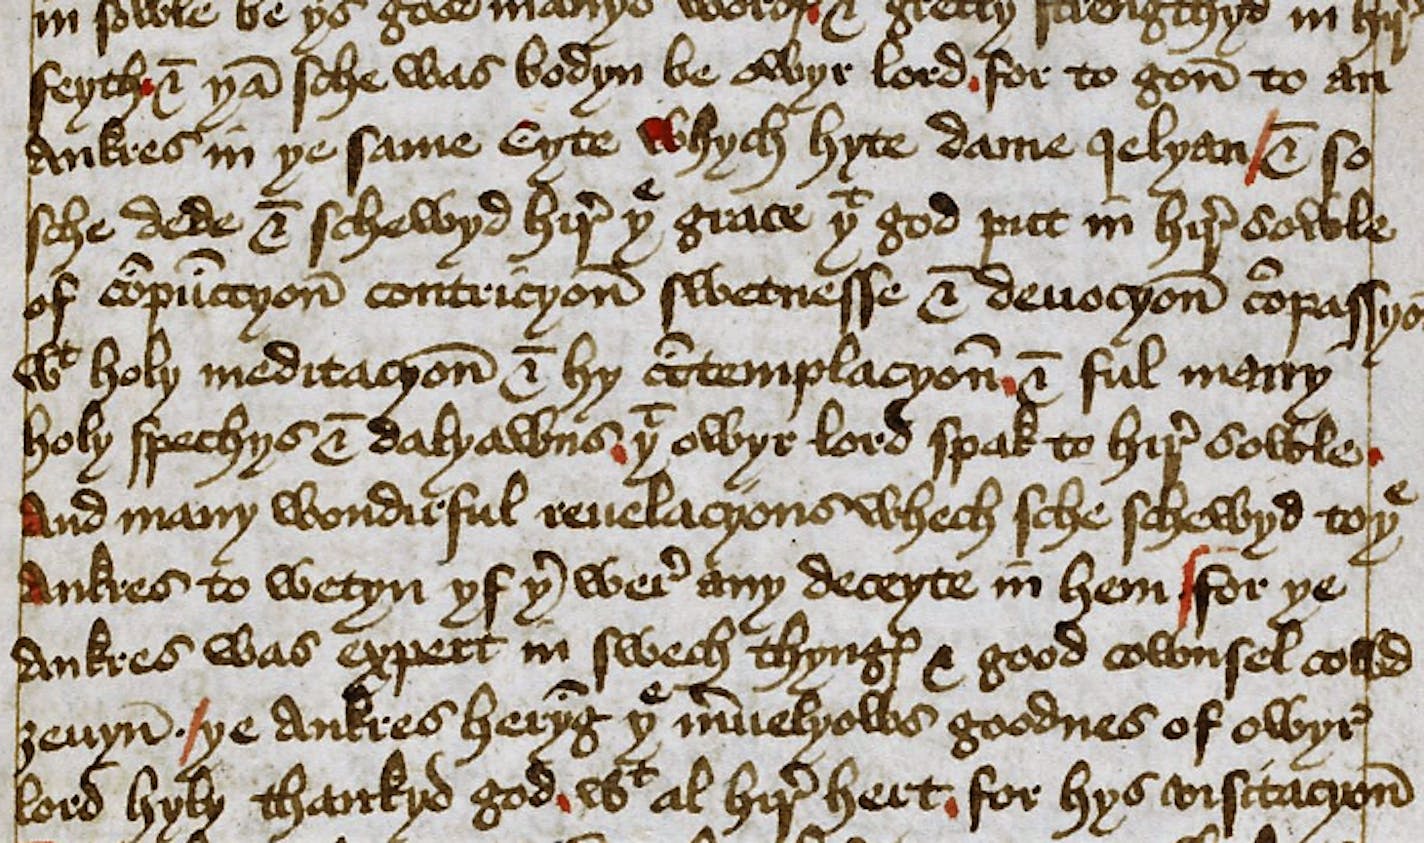 in sowle be ys good manys wordys & gretly strengthyd in hir
feyth. & yā sche was bodyn be owyr lord. for to gon̄ to an
Ankres in ye same Cyte whych hyte dame Jelyan/ & so
sche dede & schewyd hir̛ yᵉ grace yᵗ god putt in hir̛ sowle
of cōpūccyon̄ contricyon̄ swetnesse & deuocyon̄ cōpassyō
wᵗ holy meditacyon̄ & hy cōtemplacyon̄. & ful many
holy spechys & dalyawns. yᵗ owyr lord spak to hir̛ sowle.
And many wondirful reuelacyons whech sche schewyd to yᵉ
Ankres to wetyn yf yʾ wer̛ any deceyte in hem / for ye
Ankres was expert in swech thyngꝭ & good cownsel cowd
zeuyn̄. / ye Ankres heryg̅ yᵉ m̄uelyows goodnes of owyr̛
lord hyly thankyd god. wᵗ al hir̛ hert. for hys visitacyon̄